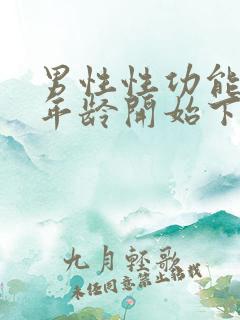 男性性功能
年龄開始下
九月轻歌
未经同意禁止转载